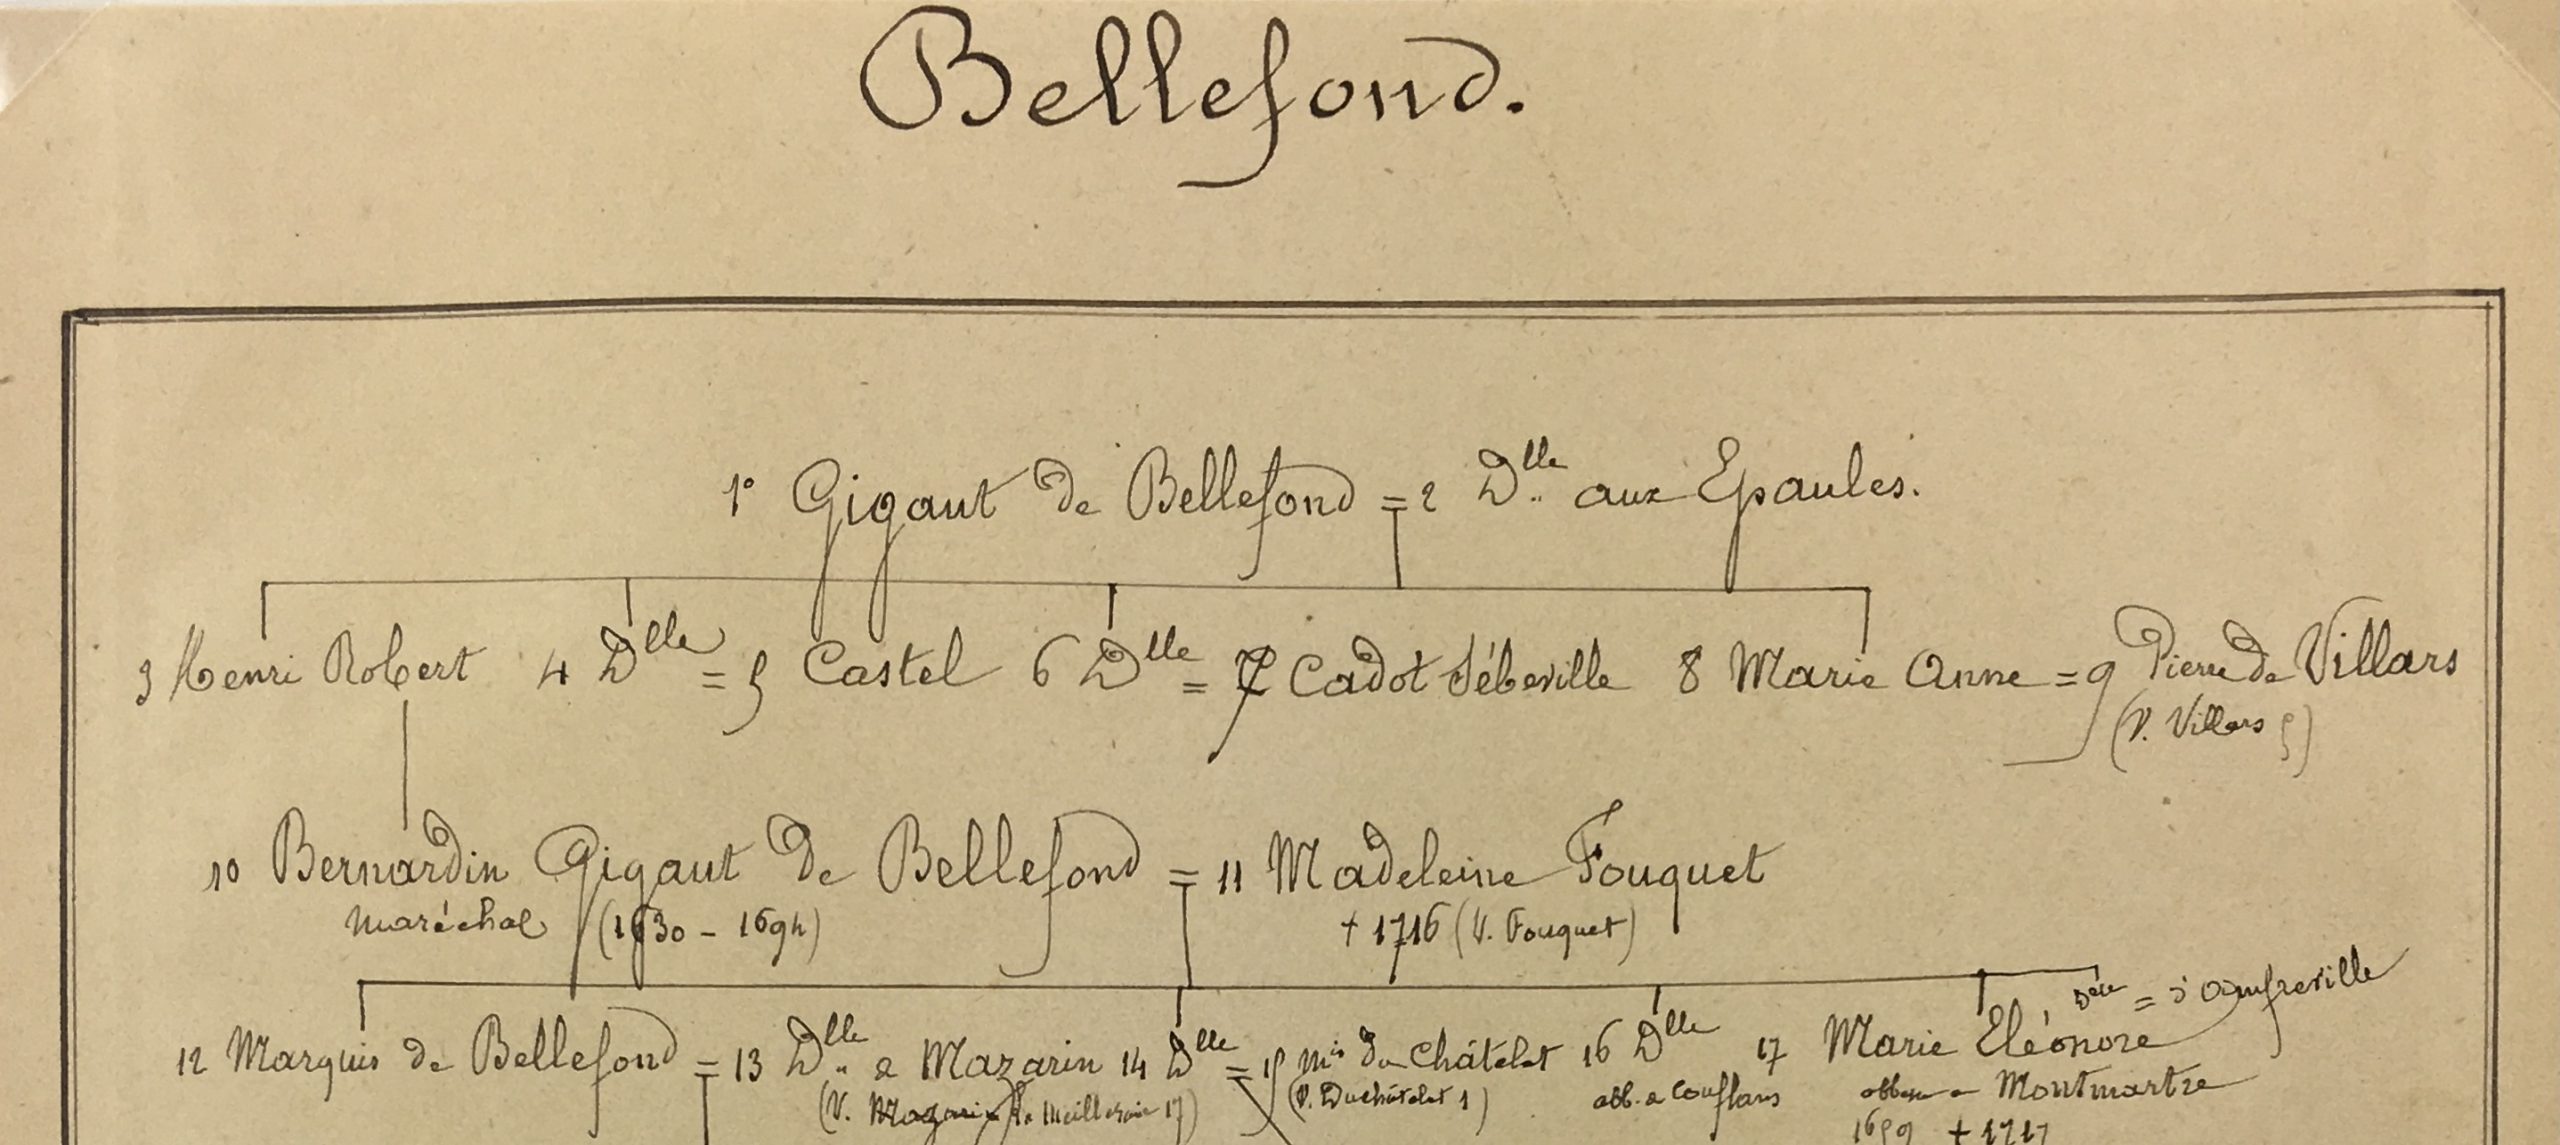 Bellefond.
1° Gigaut de Bellefond = 2 Dlle aux Epaules.
3 Henri Robert 4 Dlle = 5 Castel 6 Dlle = 7 Cadot Sébeville 8 Marie Anne = 9 Pierre de Villars
(V. Villars 5)
10 Bernardin Gigaut de Bellefond = 11 Madeleine Fouquet
maréchal (1630 - 1694) + 1716 (V. Fouquet)
Dlle = d'Amfreville
12 Marquis de Bellefond = 13 Dlle de Mazarin 14 Dlle = 15 Mis du Châtelet 16 Dlle 17 Marie Eléonore
(V. Mazarin la Meilleraie 17) (V. Duchâtelet 1) abb. de Conflans abbesse de Montmartre
1659 + 1717